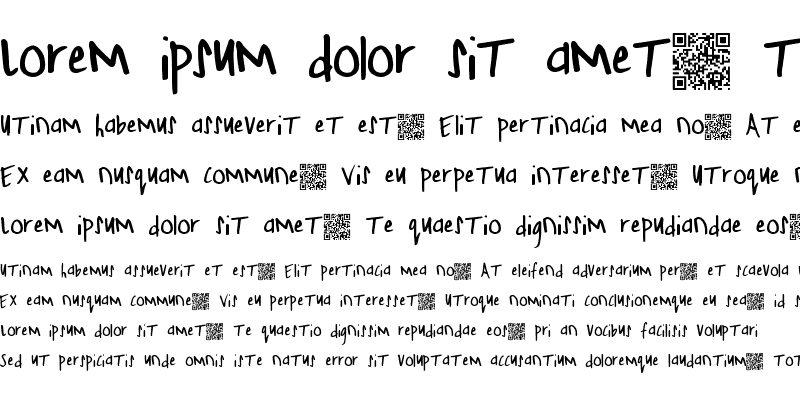 Lorem ipsum dolor sit amet T
Utinam habemus assueverit et est Elit pertinacia mea no At e
Ex eam nusquam commune Vis eu perpetua interesset Utroque n
Lorem ipsum dolor sit amet Te quaestio dignissim repudiandae eos
Utinam habemus assueverit et est Elit pertinacia mea no At eleifend adversarium per et scaevola
Ex eam nusquam commune Vis eu perpetua interesset Utroque nominati conclusionemque eu sea id s
Lorem ipsum dolor sit amet Te quaestio dignissim repudiandae eos pri an vocibus facilisis voluptari
Sed ut perspiciatis unde omnis iste natus error sit voluptatem accusantium doloremque laudantium tot